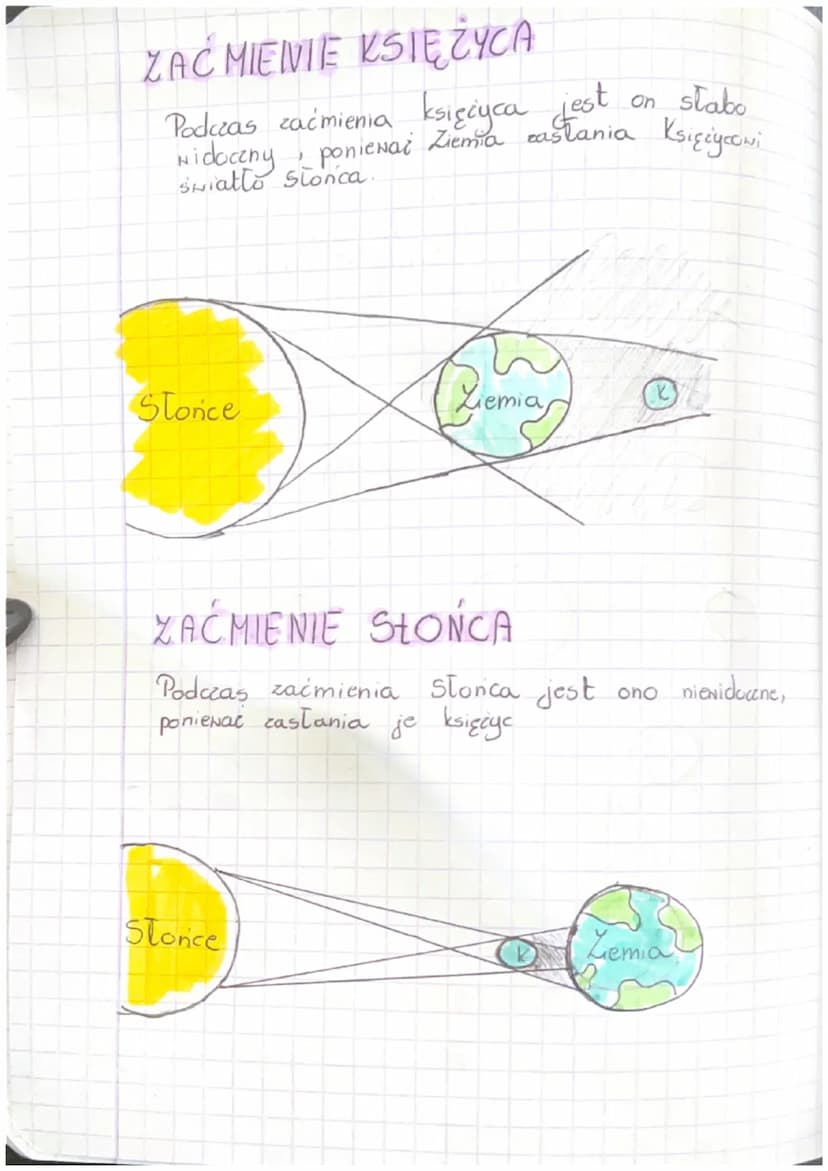 ZAĆMIENIE KSIĘŻYCA
Podczas zaćmienia księżyca jest on słabo
widoczny, ponieważ Ziemia zasłania Księżycowi
światło słońca.
Słońce
Ziemia
K
ZAĆMIENIE SŁOŃCA
Podczas zaćmienia Słońca jest ono niewidoczne,
ponieważ zasłania je księżyc
Słońce
K
Ziemia